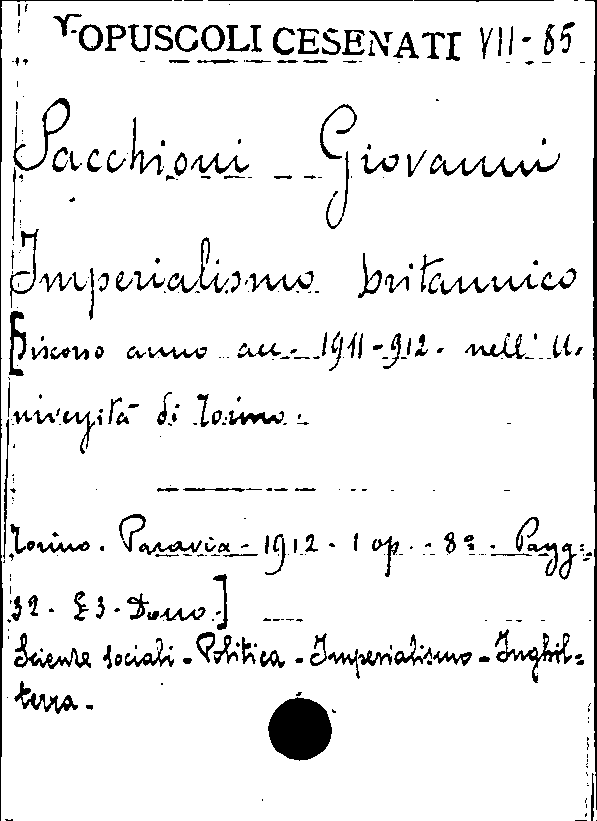 OPUSCOLI CESENATI VII-85
Pacchioni Giovanni
Imperialismo britannico
[Discorso anno acc. 1911-912. nell' U-
niversità di Torino.
Torino. Paravia. 1912. 1 op. 8º. Pagg.
32. £3. Dono.]
Scienze sociali - Politica - Imperialismo - Inghil=
terra.